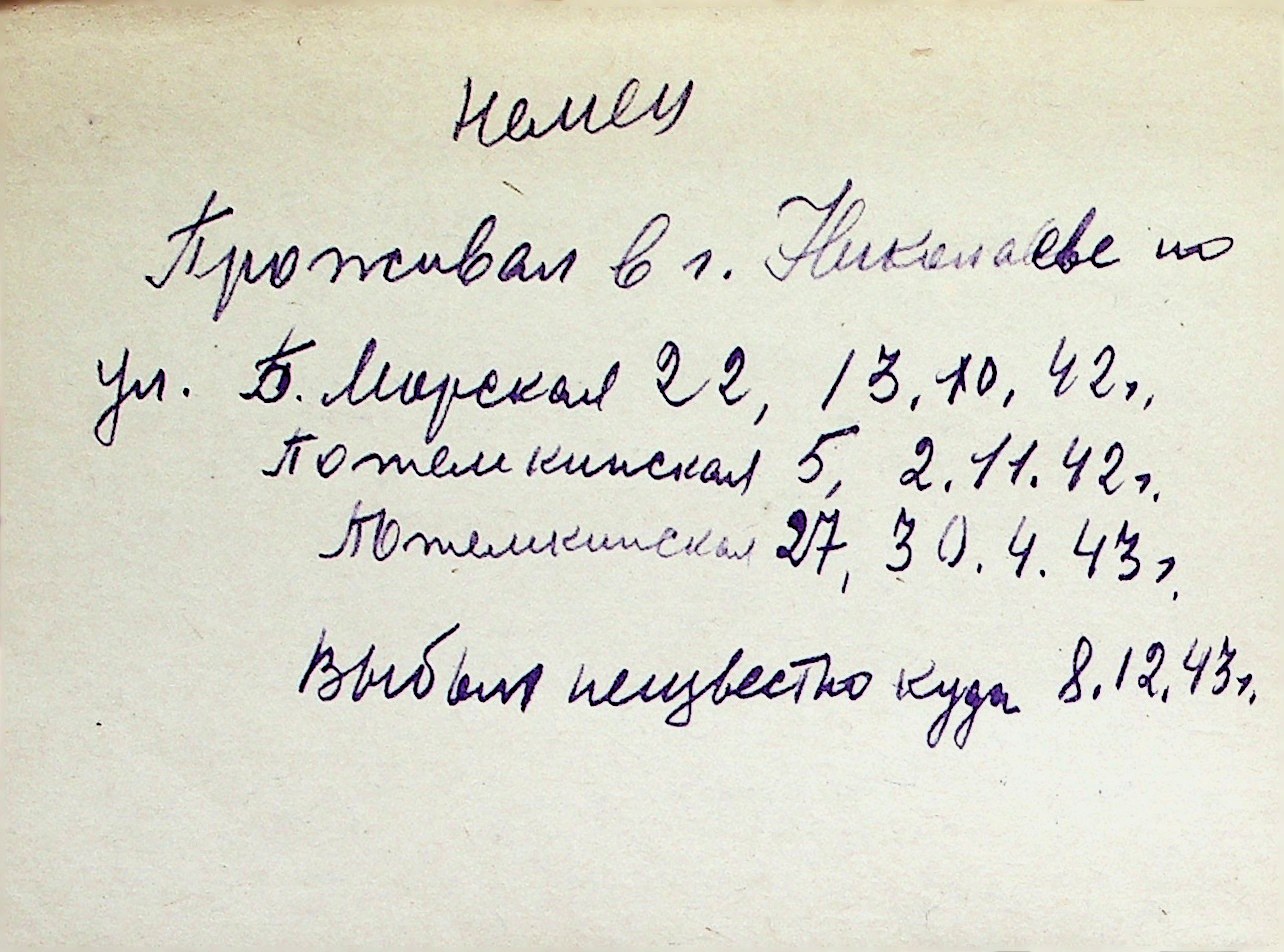 Немец
Проживал в г. Николаеве по
ул. Б. Морская 22, 13.10.42г.
Потемкинская 5, 2.11.42г.
Потемкинская 27, 30.4.43г.
Выбыл неизвестно куда 8.12.43г.